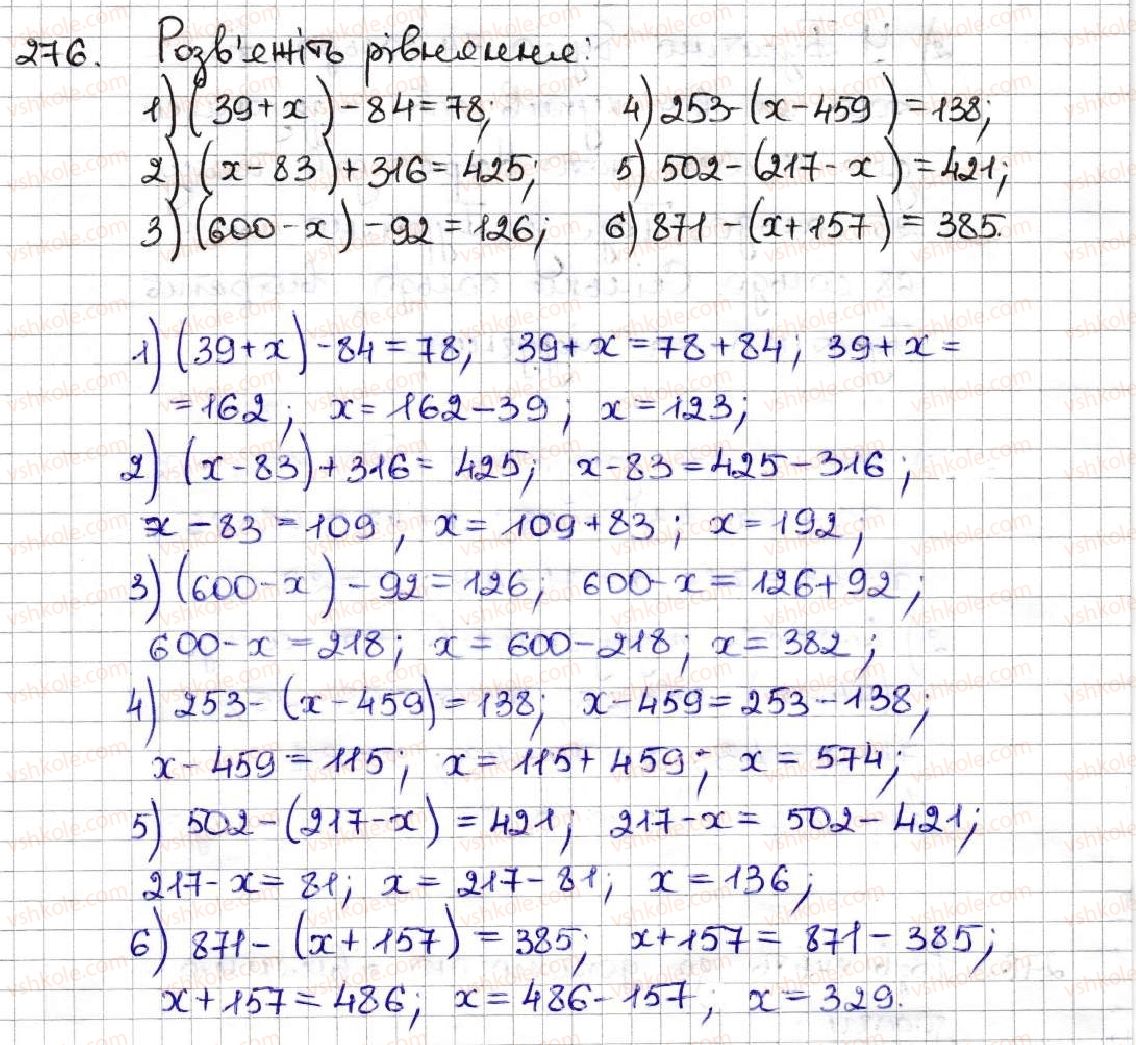 276. Розв'яжіть рівняння:
1) (39+x)-84=78; 4) 253-(x-459)=138;
2) (x-83)+316=425; 5) 502-(217-x)=421;
3) (600-x)-92=126; 6) 871-(x+157)=385.
1) (39+x)-84=78; 39+x=78+84; 39+x=
=162; x=162-39; x=123;
2) (x-83)+316=425; x-83=425-316;
x-83=109; x=109+83; x=192;
3) (600-x)-92=126; 600-x=126+92;
600-x=218; x=600-218; x=382;
4) 253-(x-459)=138; x-459=253-138;
x-459=115; x=115+459; x=574;
5) 502-(217-x)=421; 217-x=502-421;
217-x=81; x=217-81; x=136;
6) 871-(x+157)=385; x+157=871-385;
x+157=486; x=486-157; x=329.